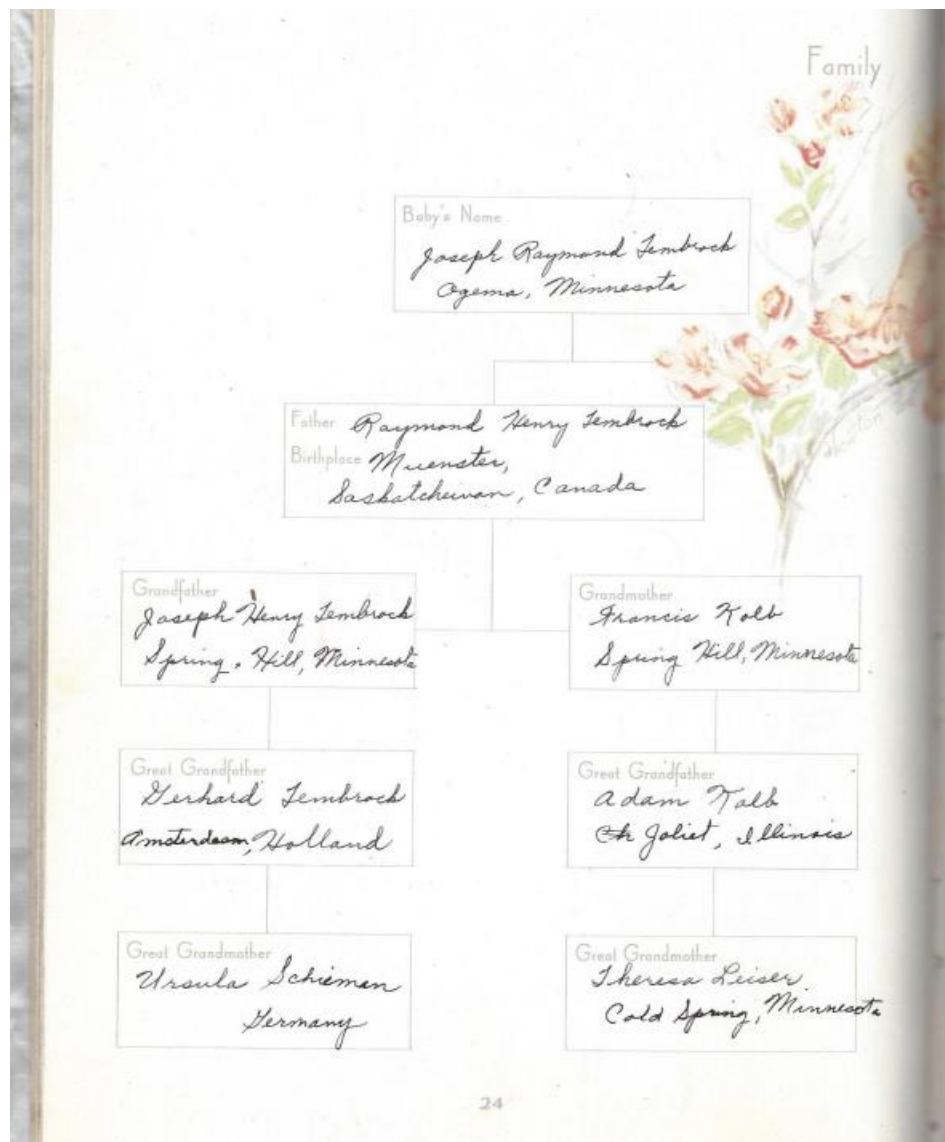 Family
Baby's Name
Joseph Raymond Tembrock
Ogema, Minnesota
Father Raymond Henry Tembrock
Birthplace Muenster,
Saskatchewan, Canada
Grandfather
Joseph Henry Tembrock
Spring Hill, Minnesota
Grandmother
Francis Kolb
Spring Hill, Minnesota
Great Grandfather
Gerhard Tembrock
Amsterdam, Holland
Great Grandfather
Adam Kolb
Joliet, Illinois
Great Grandmother
Ursula Schieman
Germany
Great Grandmother
Theresa Leiser
Cold Spring, Minnesota
24